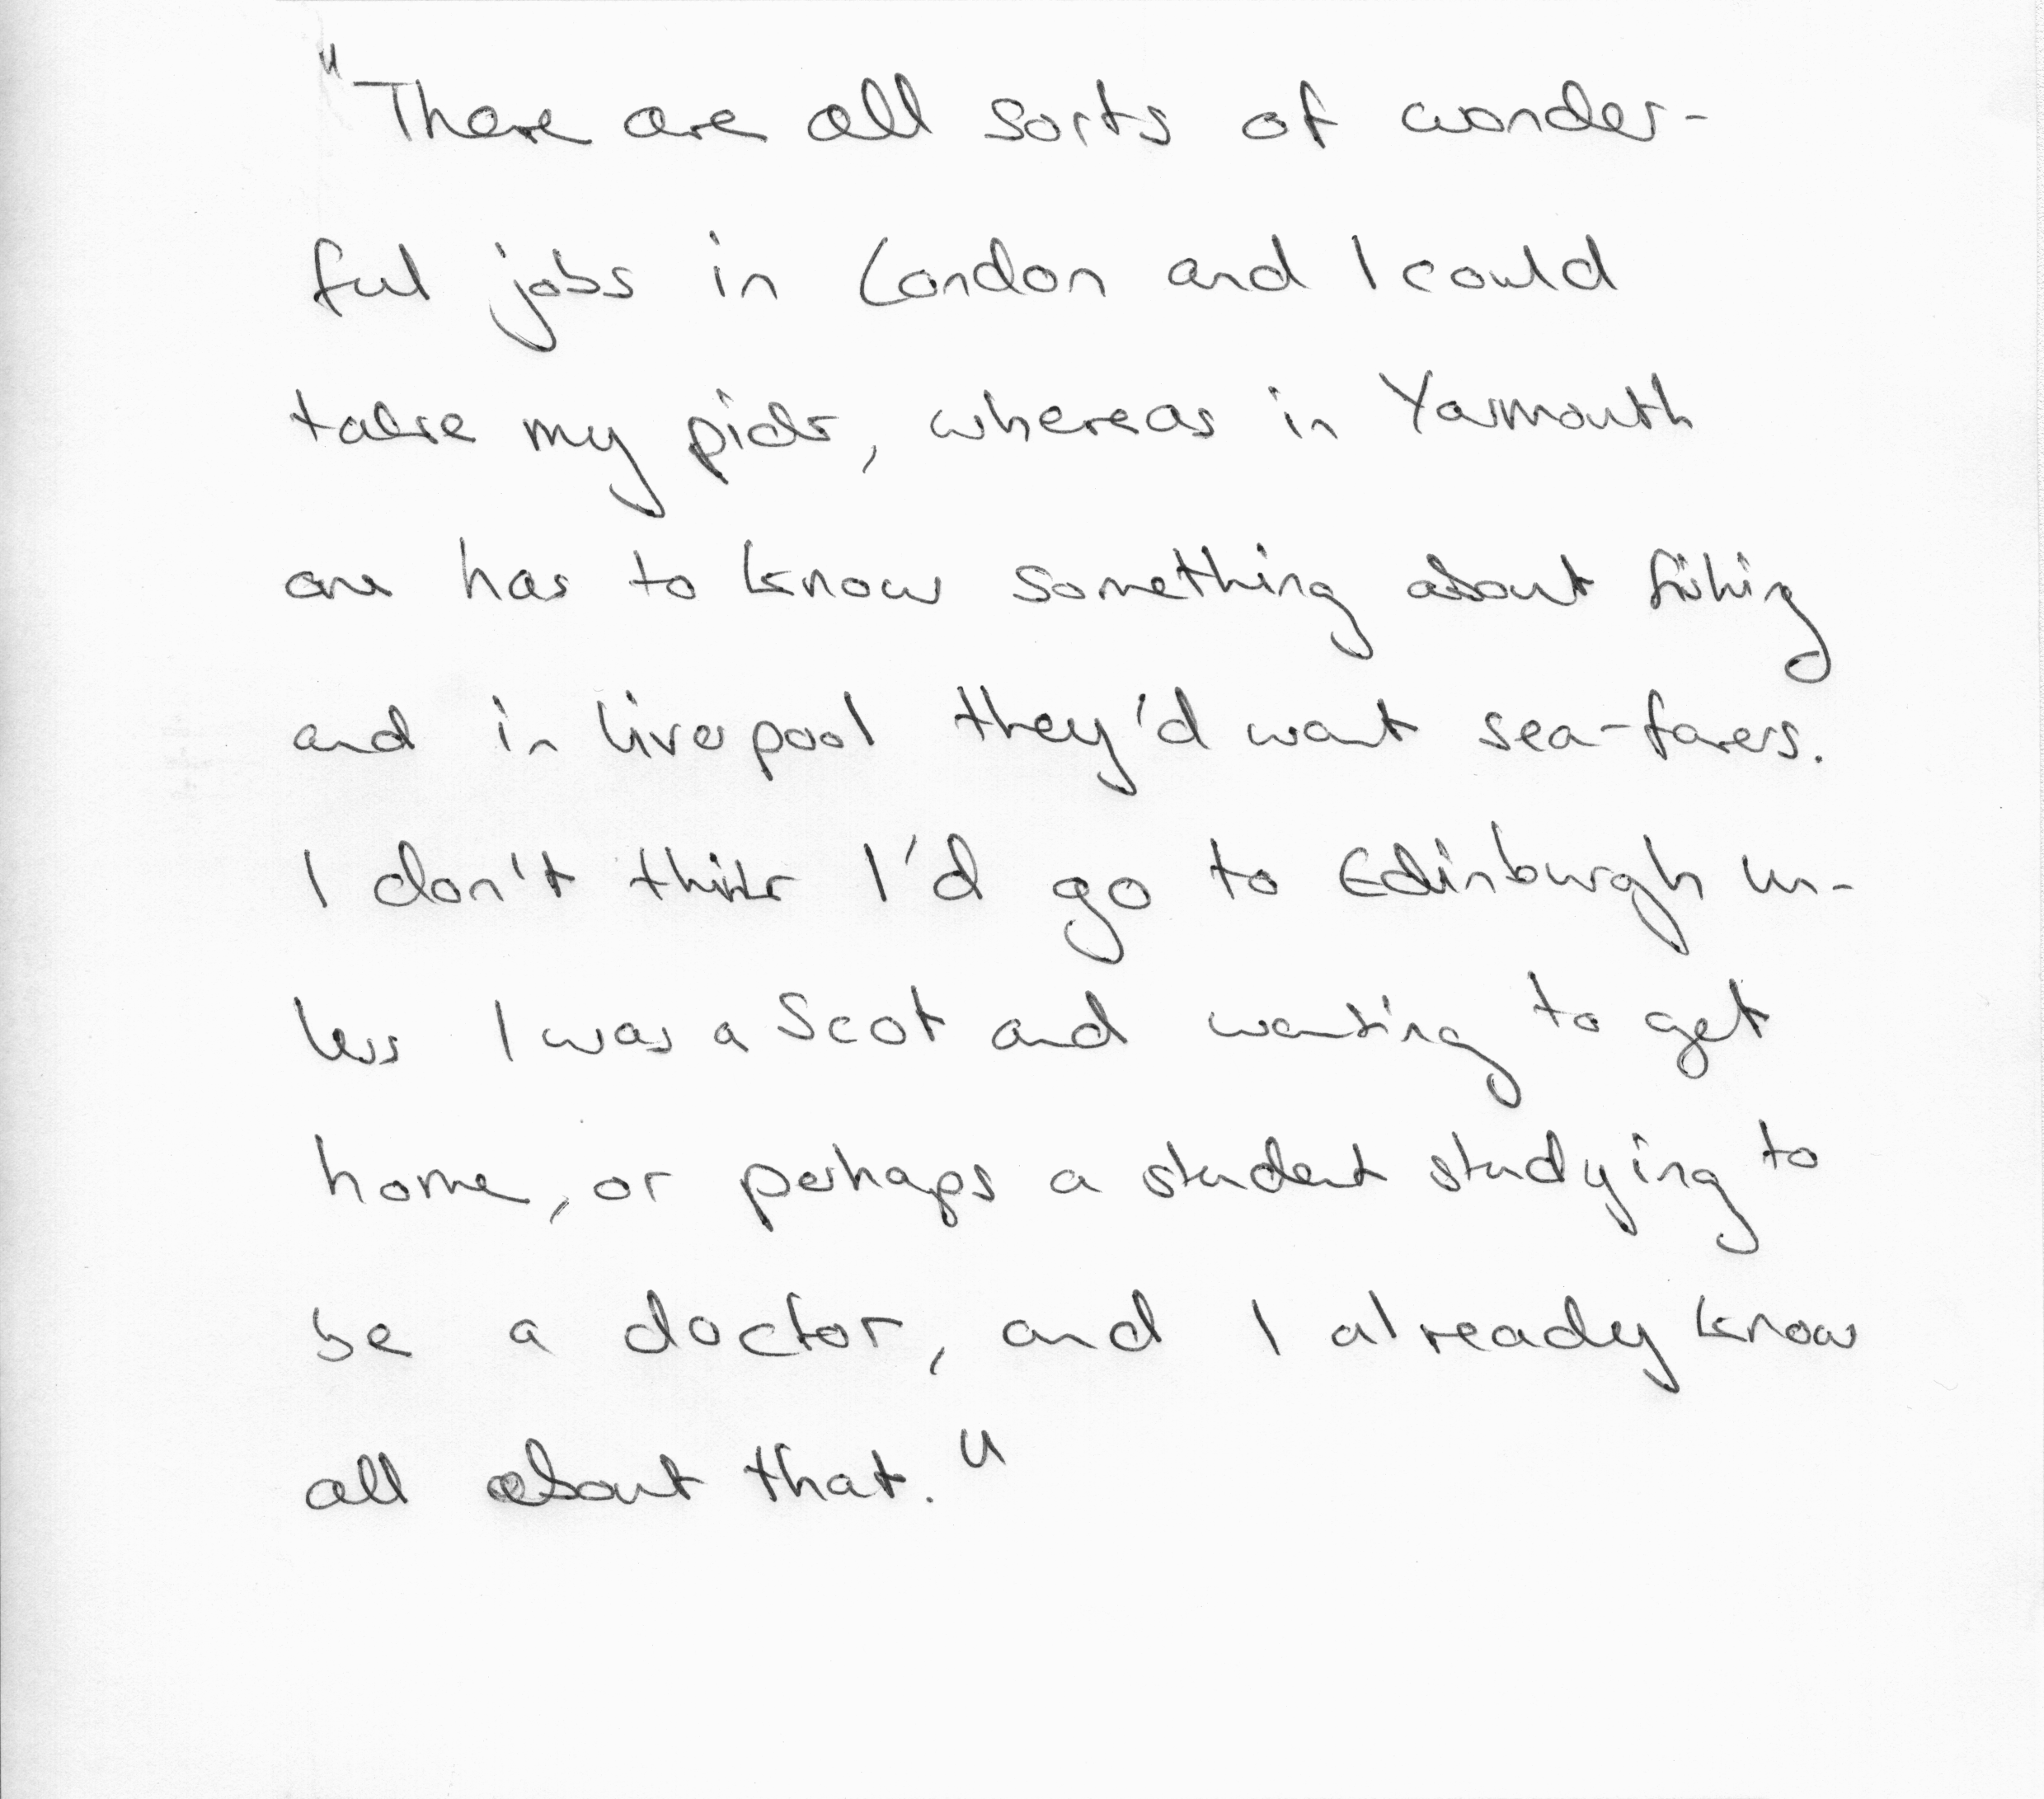 "There are all sorts of wonder-
ful jobs in London and I could
take my pick, whereas in Yarmouth
one has to know something about fishing
and in Liverpool they'd want sea-farers.
I don't think I'd go to Edinburgh un-
less I was a Scot and wanting to get
home, or perhaps a student studying to
be a doctor, and I already know
all about that."